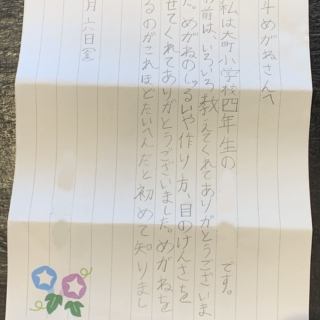 斗めがねさんへ
私は大町小学校四年生の です。
前は、いろいろ教えてくれてありがとうございま
た。めがねのしゅるいや作り方、目のけんさを
せてくれてありがとうございました。めがねを
るのがこれほどたいへんだと初めて知りまし
月六日(金)